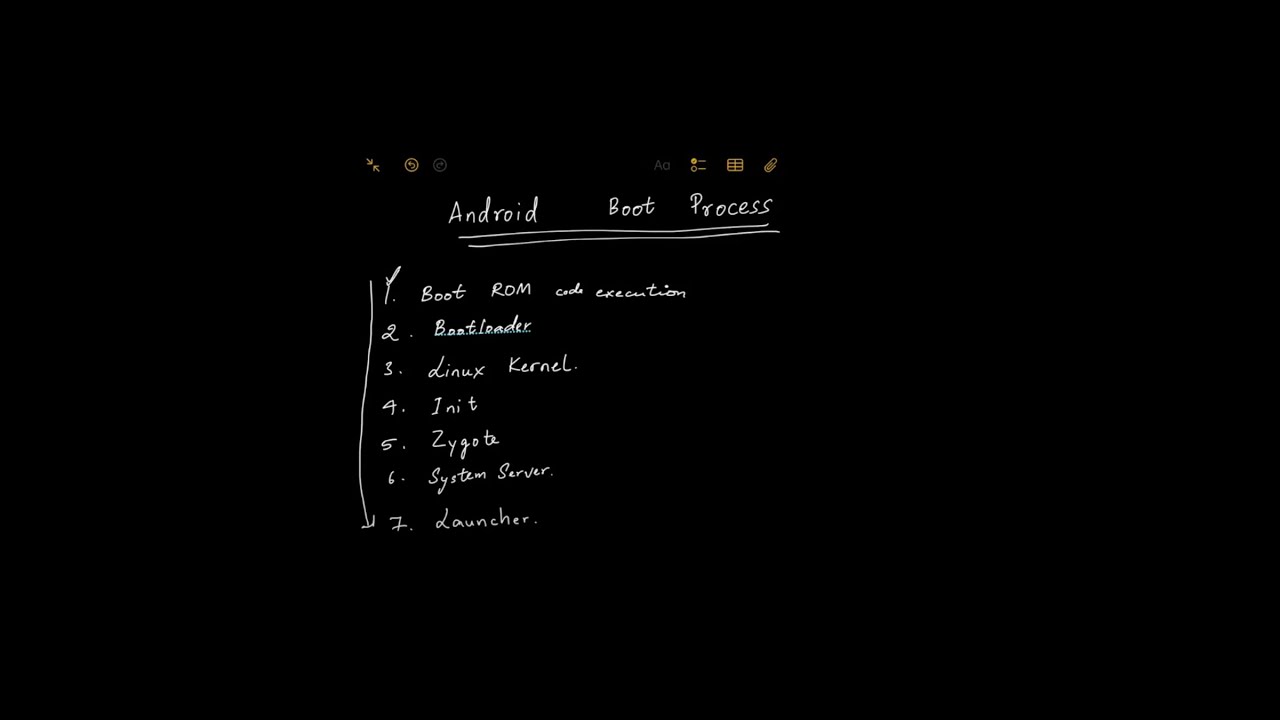 Aa
Android Boot Process
1. Boot ROM code execution
2. Bootloader
3. Linux Kernel.
4. Init
5. Zygote
6. System Server.
7. Launcher.